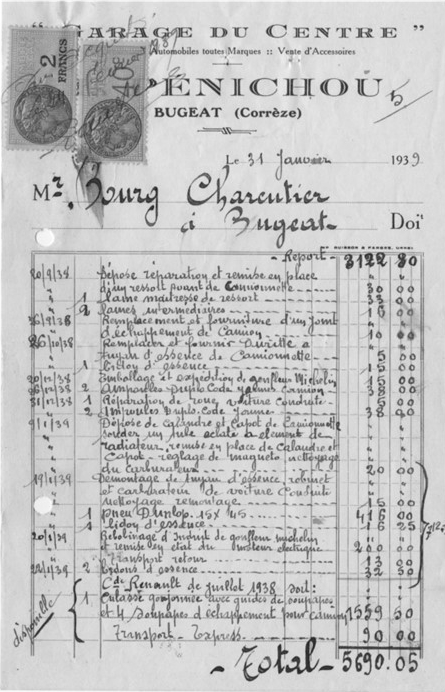 “GARAGE DU CENTRE”
Automobiles toutes Marques :: Vente d'Accessoires
2
FRANCS
PÉNICHOU
BUGEAT (Corrèze)
Le 31 Janvier 1939
Mr Bourg Charentier
à Bugeat Doit
Report 3122 80
20/9/38 Dépose réparation et remise en place
d'un ressort avant de camionnette 30 00
1 lame maitresse de ressort 33 00
2 lames intermédiaires
Remplacement et fourniture d'un joint
d'échappement de Camion 10 00
Remplacer et fournir Durette à
tuyau d'essence de Camionnette 5 00
1 Bidon d'essence 15 00
Emballage et expédition de gonfleur Michelin 15 00
2 Ampoules Duplo Code Camion 38 00
1 Réparation de roue, voiture conduite 5 00
2 Ampoules Duplo-Code Jaune 38 00
9/1/39 Dépose de calandre et Capot de Camionnette
souder un tube éclaté à élément de
radiateur, remise en place de Calandre et
Capot - réglage de magnéto nettoyage
du carburateur 20 00
19/1/39 Démontage de tuyau d'essence, robinet
et carburateur de voiture Conduite
nettoyage remontage 15 00
1 pneu Dunlop 15 x 45 416 00
1 bidon d'essence 16 25
20/1/39 Rebobinage d'Induit de gonfleur michelin
et remise en état du moteur électrique 200 00
Transport retour 13 00
22/1/39 2 Bidons d'essence 32 50
Cde Renault de juillet 1938 soit:
1 Culasse goujonnée avec guides de soupapes
et 4 Soupapes d'échappement pour camion 1559 50
Transport - Express 90 00
disponible
Total 5690.05